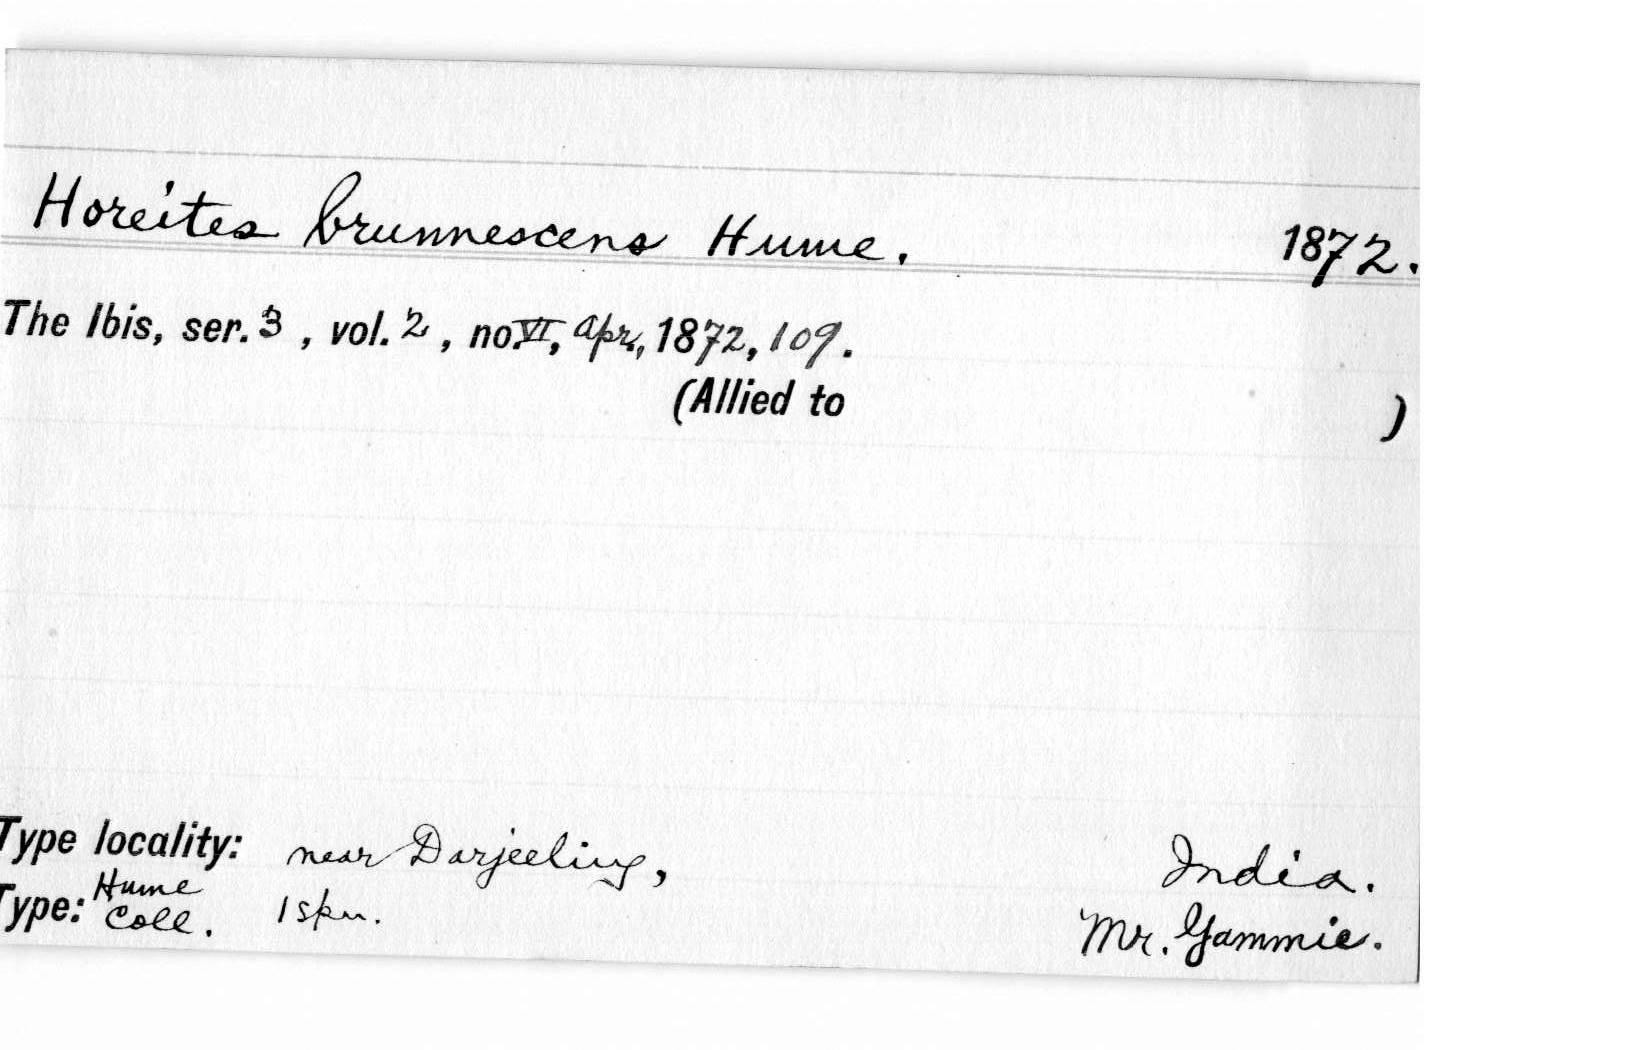 Horeites brunnescens Hume. 1872.
The Ibis, ser. 3, vol. 2, no. VI, Apr., 1872, 109.
(Allied to )
Type locality: near Darjeeling, India.
Type: Hume Coll. 1 skn. Mr. Gammie.